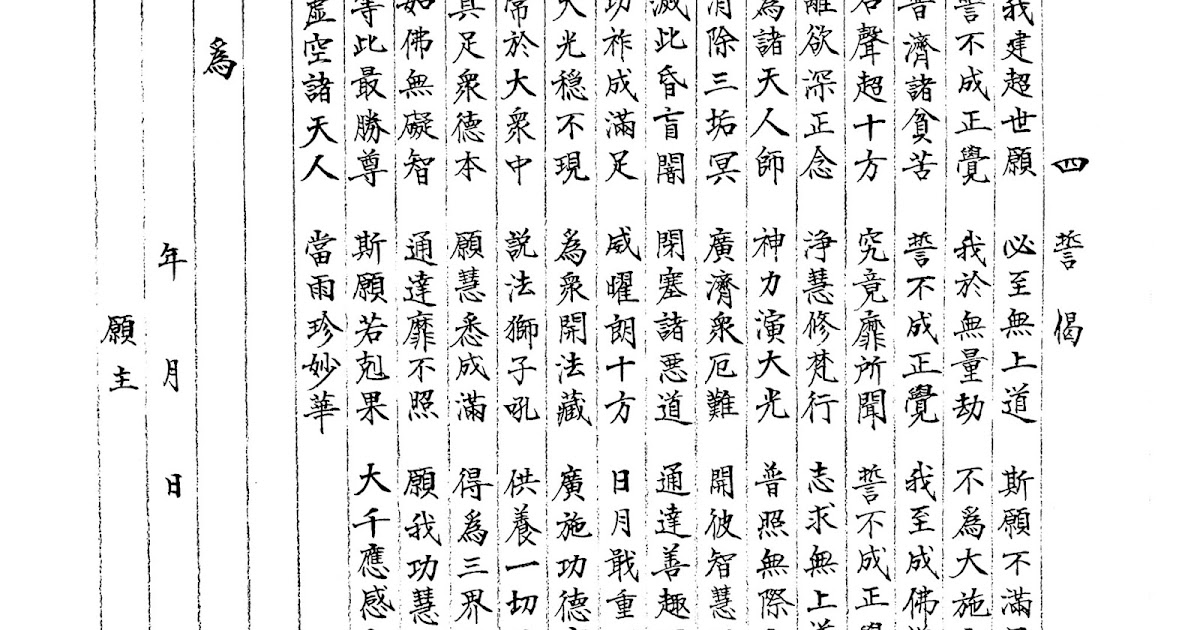 四誓偈
我建超世願 必至無上道 斯願不滿
誓不成正覺 我於無量劫 不爲大施
普濟諸貧苦 誓不成正覺 我至成佛
名聲超十方 究竟靡所聞 誓不成正覺
離欲深正念 浄慧修梵行 志求無上道
爲諸天人師 神力演大光 普照無際
消除三垢冥 廣濟衆厄難 開彼智慧
滅此昏盲闇 閉塞諸悪道 通達善趣
功祚成滿足 威曜朗十方 日月戢重
天光穏不現 爲衆開法藏 廣施功德
常於大衆中 説法獅子吼 供養一切
具足衆德本 願慧悉成滿 得爲三界
如佛無礙智 通達靡不照 願我功慧
等此最勝尊 斯願若剋果 大千應感
虛空諸天人 當雨珍妙華
爲
年 月 日
願主